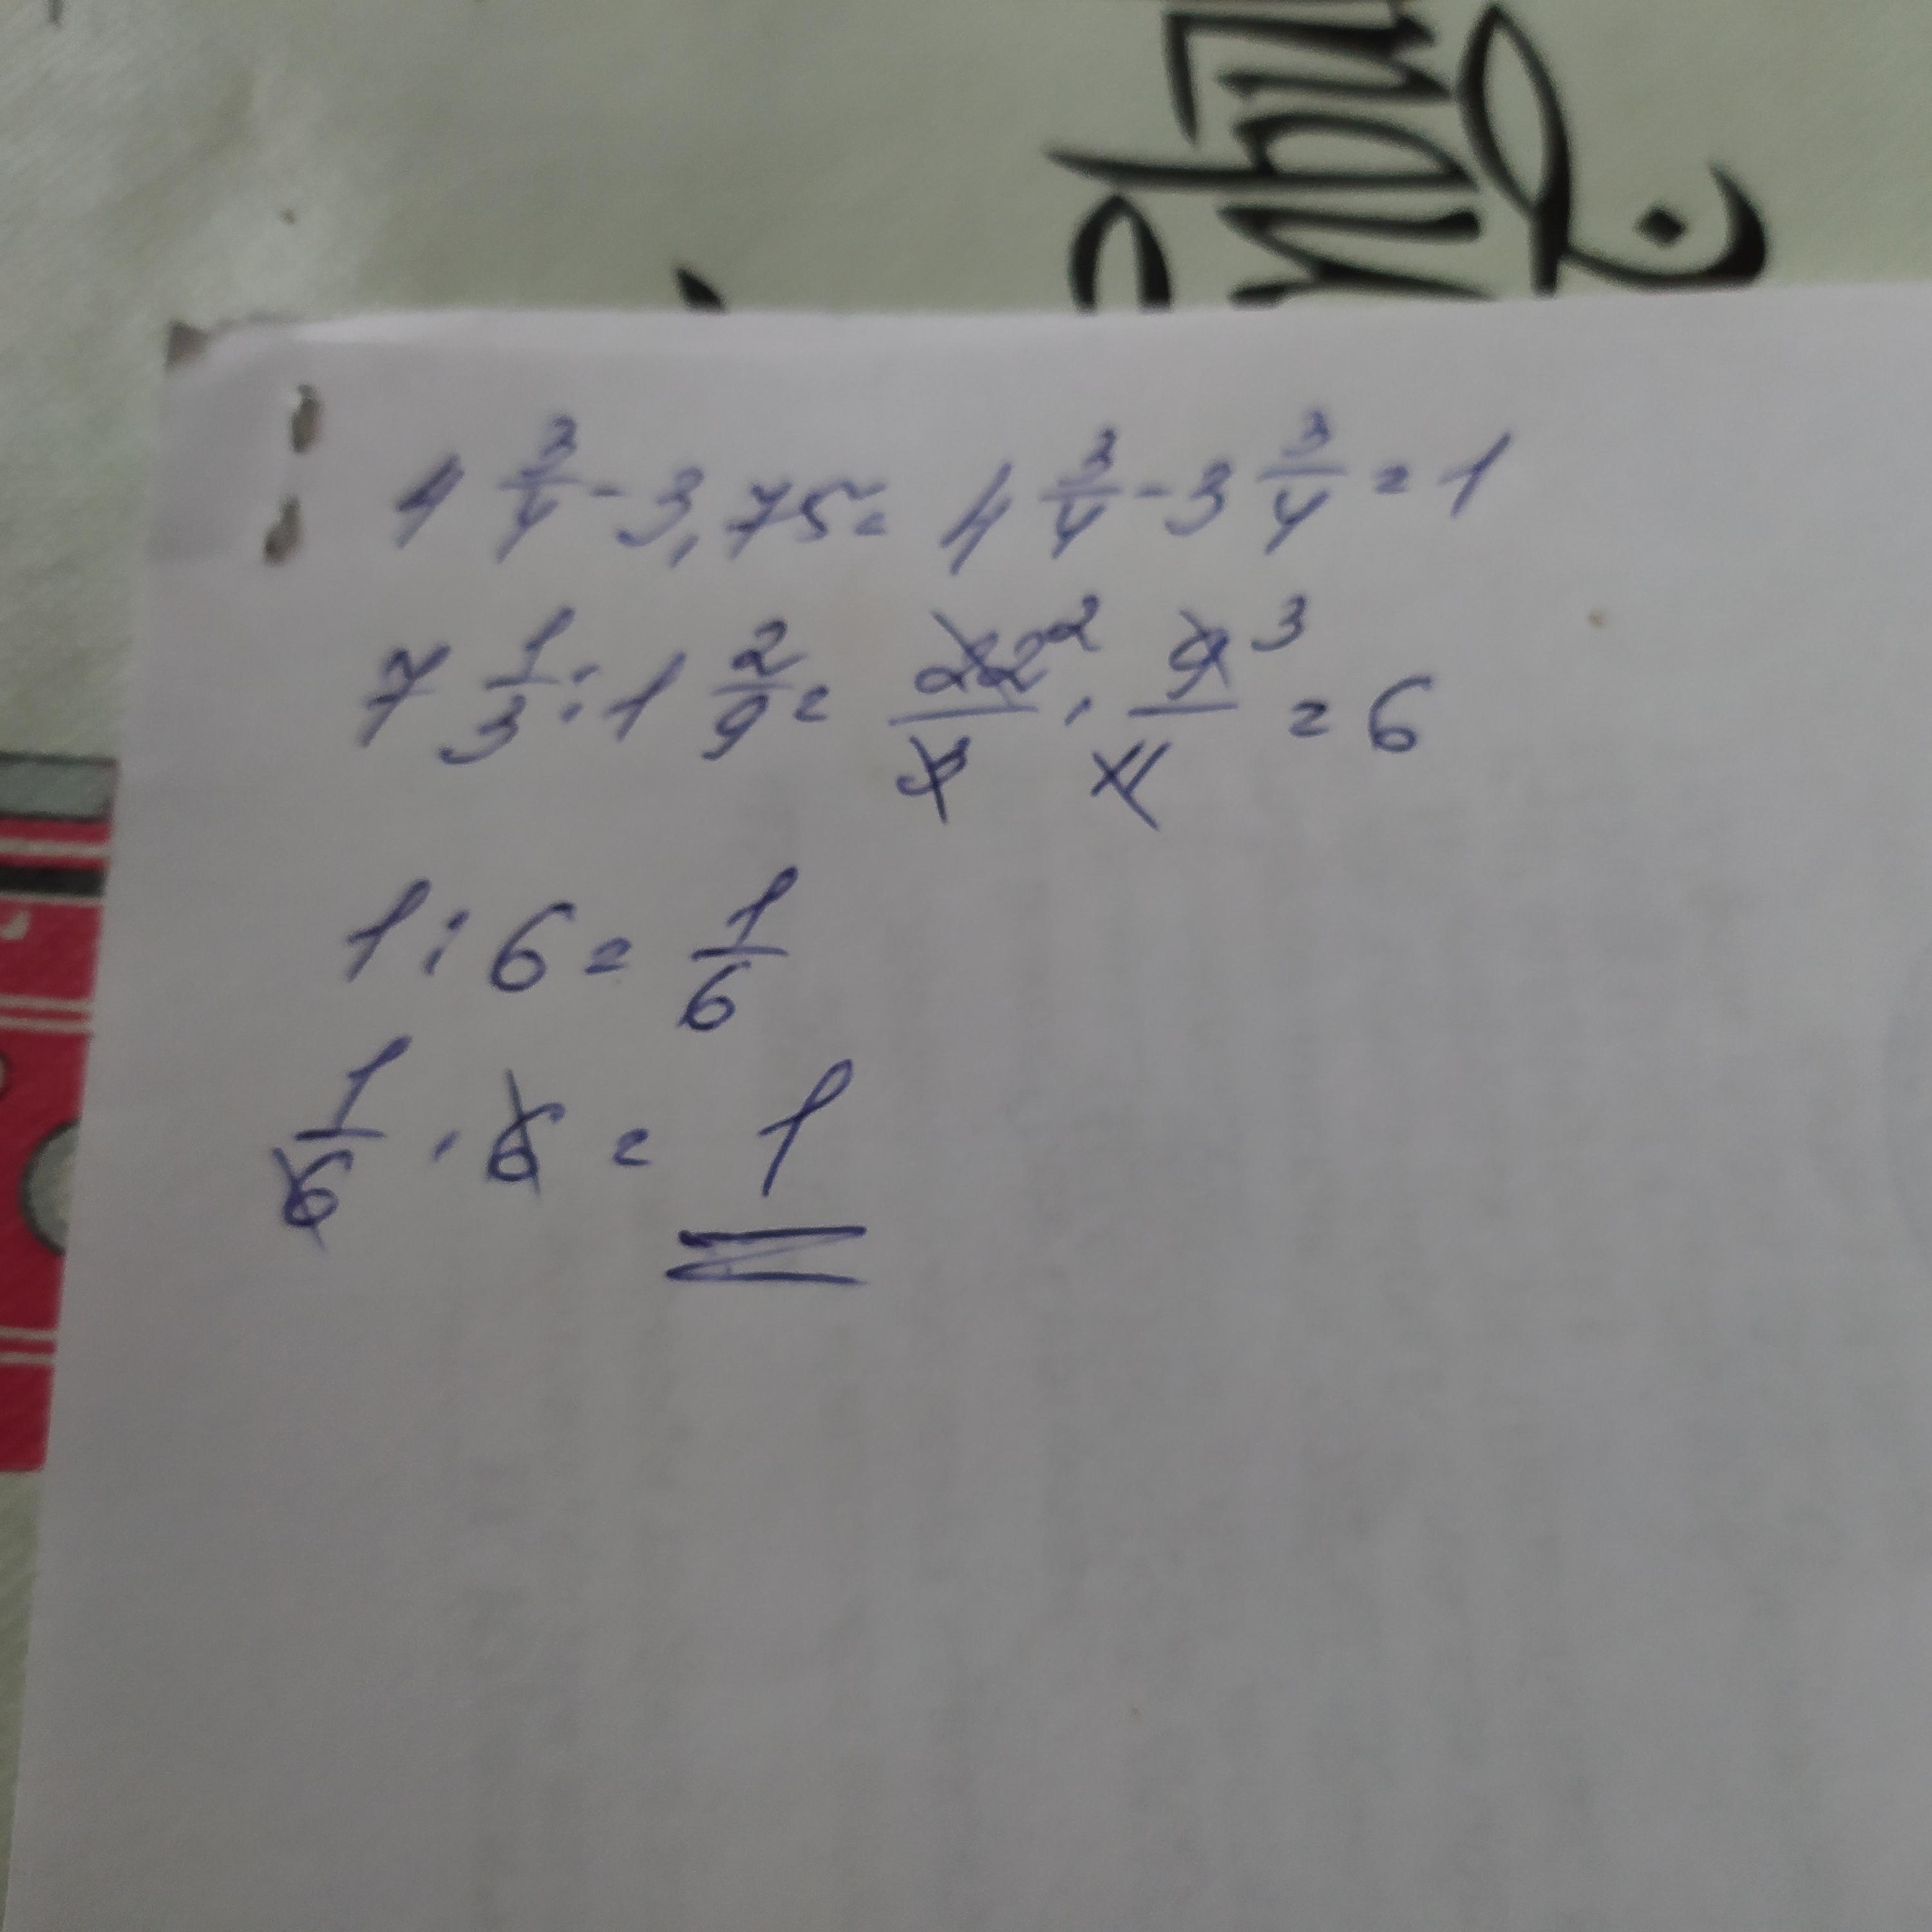 4 3/4 - 3,75 = 4 3/4 - 3 3/4 = 1
7 1/3 : 1 2/9 = 22 2/3 · 9 3/11 = 6
1 : 6 = 1/6
1/6 · 6 = 1